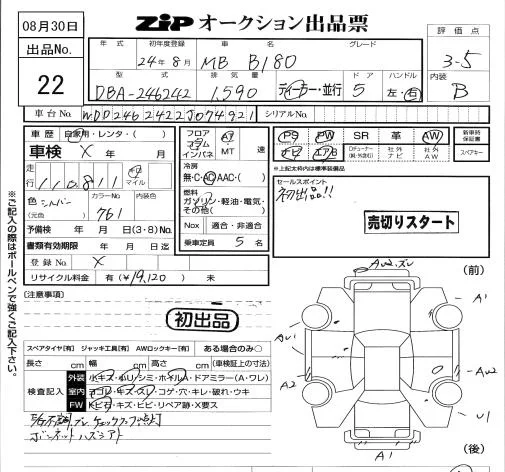 08月30日
出品No.
22
ZIP オークション出品票
評価点
3-5
内装
B
年式 初年度登録 車名 グレード
24年8月 MB B180
型式 排気量 ドア ハンドル
DBA-246242 1,590 ディーラー・並行 5 左・右
車台No. WDD2462422J074921 シリアルNo.
車歴 自家用・レンタ・( )
車検 X 年 月
走行 110,811 km マイル
色 シルバー (元色) カラーNo. 761 内装色
予備検 年 月 日(3・8)No.
書類有効期限 年 月 日迄
登録No. X
リサイクル料金 有(¥19,120) 未
フロア コラム インパネ AT MT 速
冷房
無・C・AC・AAC・( )
燃料
ガソリン・軽油・電気・その他( )
Nox 適合・非適合
乗車定員 5 名
PS PW SR 革 AW 新車時保証書
ナビ エアB 社外ナビ 社外AW スペアキー
※上記太枠内は標準装備品
セールスポイント
初出品!!
売切りスタート
(注意事項)
初出品
スペアタイヤ[有] ジャッキ工具[有] AWロックキー[有] ある場合のみ○
長さ cm 幅 cm 高さ cm (車検証上の寸法)
検査記入
外装 小キズ・ホリ・シミ・ホイルA・ドアミラー(A・ワレ)
室内 ヨゴレ・キズ・スレ・コゲ・穴・キレ・破れ・ウキ
FW トビ石・キズ・ヒビ・リペア跡・X要ス
ボンネットハズシアト
※ご記入の際はボールペンで強くご記入下さい。
(前)
A1
A2
A1
U1
(後)